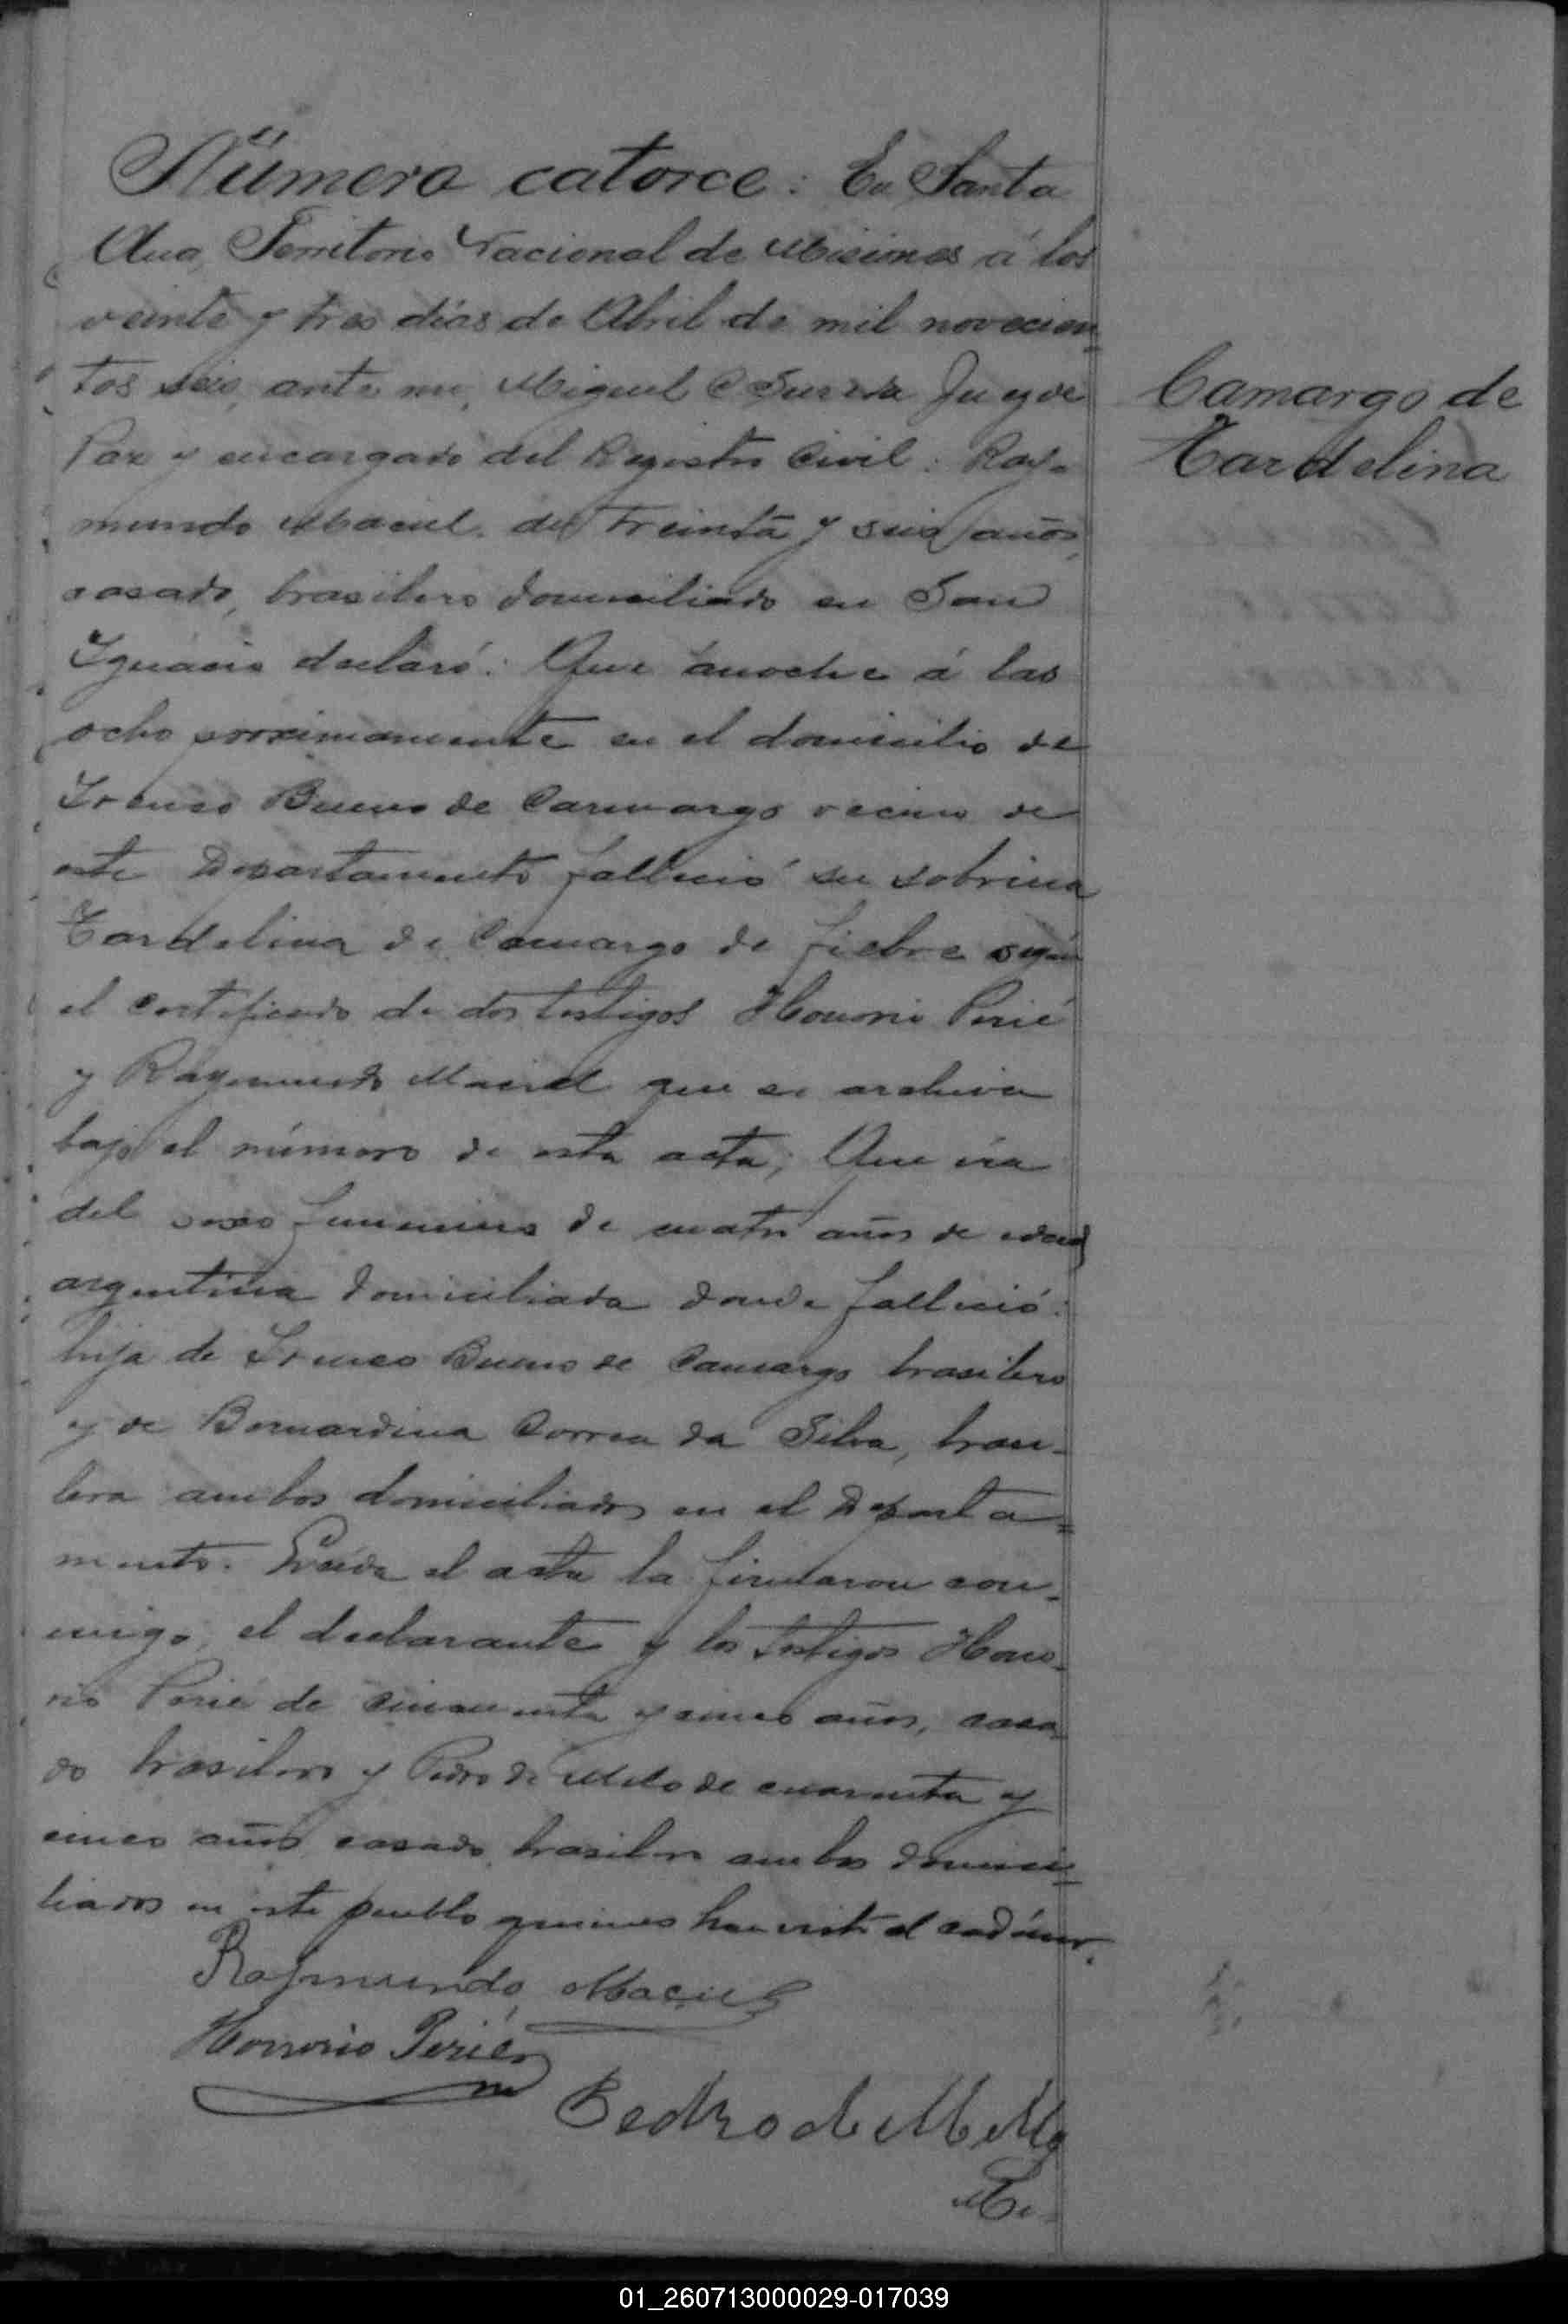 Número catorce: En Santa
Ana, Territorio Nacional de Misiones á los
veinte y tres días de Abril de mil novecien=
tos seis, ante mi, Miguel Juez de
Paz y encargado del Registro Civil: Ray=
mundo Maciel, de treinta y seis años,
casado, brasilero domiciliado en San
Ignacio declaró: Que anoche á las
ocho proximamente en el domicilio de
Ireneo Bueno de Camargo vecino de
este Departamento falleció su sobrina
Tardelina de Camargo de fiebre según
el certificado de dos testigos Honorio Perié
y Raymundo Maciel que se archiva
bajo el número de esta acta; Que era
del sexo femenino de cuatro años de edad
argentina domiciliada donde falleció:
hija de Ireneo Bueno de Camargo brasilero
y de Bernardina Correa da Silva, brasi-
lera ambos domiciliados en el Departa=
mento. Leída el acta la firmaron con-
migo, el declarante y los testigos Hono-
rio Perié de cincuenta y cinco años, casa-
do brasilero y Pedro de Mello de cuarenta y
cinco años casado, brasilero ambos domici=
liados en este pueblo quienes han visto el cadáver.
Camargo de
Tardelina
Raymundo Maciel
Honorio Perié
Pedro de Mello
01_260713000029-017039